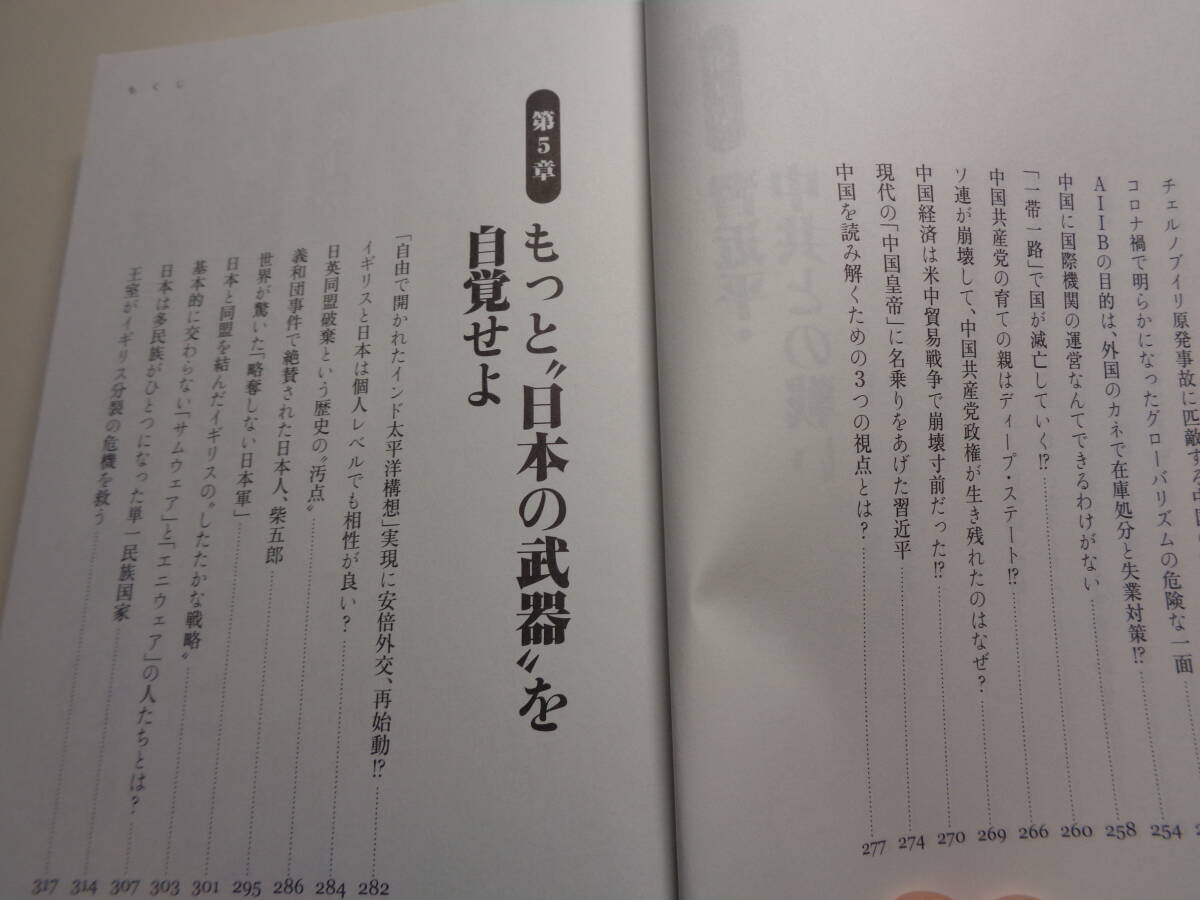 チェルノブイリ原発事故に匹敵する中国の
コロナ禍で明らかになったグローバリズムの危険な一面
AIIBの目的は、外国のカネで在庫処分と失業対策!? 254
中国に国際機関の運営なんてできるわけがない 258
「一帯一路」で国が滅亡していく!? 260
中国共産党の育ての親はディープ・ステート!? 266
ソ連が崩壊して、中国共産党政権が生き残れたのはなぜ? 269
中国経済は米中貿易戦争で崩壊寸前だった!? 270
現代の「中国皇帝」に名乗りをあげた習近平 274
中国を読み解くための3つの視点とは? 277
もくじ
第5章
もっと〝日本の武器〟を
自覚せよ
「自由で開かれたインド太平洋構想」実現に安倍外交、再始動!? 282
イギリスと日本は個人レベルでも相性が良い? 284
日英同盟破棄という歴史の〝汚点〟 286
義和団事件で絶賛された日本人、柴五郎 295
世界が驚いた「略奪しない日本軍」 301
日本と同盟を結んだイギリスの〝したたかな戦略〟 303
基本的に交わらない「サムウェア」と「エニウェア」の人たちとは? 307
日本は多民族がひとつになった単一民族国家 314
王室がイギリス分裂の危機を救う 317